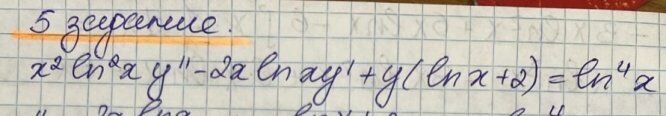 5 задание.
x² ln²x y'' - 2x lnxy' + y(lnx+2) = ln⁴x